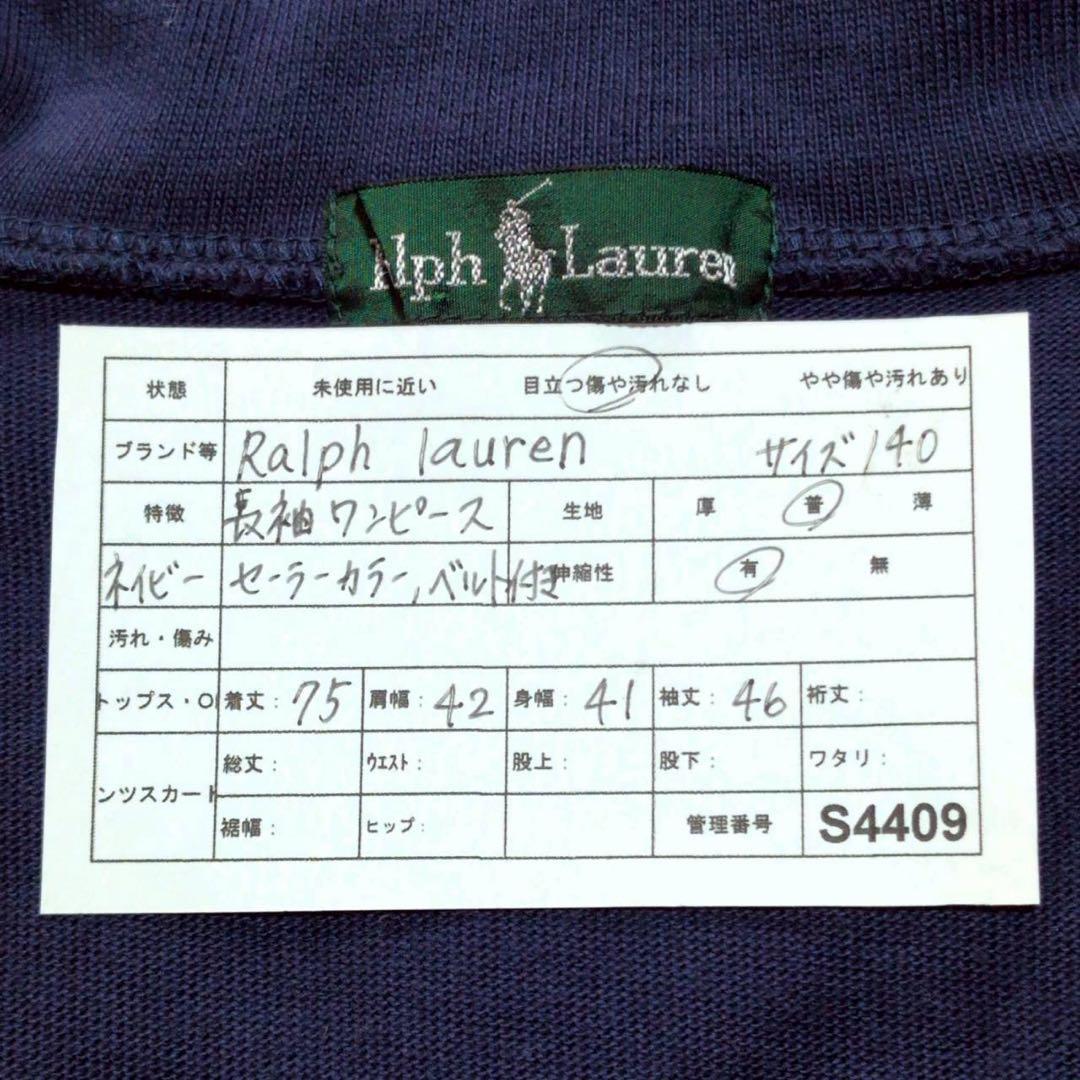 alph Lauren
状態 未使用に近い 目立つ傷や汚れなし やや傷や汚れあり
ブランド等 Ralph lauren サイズ140
特徴 長袖ワンピース 生地 厚 普 薄
ネイビー セーラーカラー,ベルト付き 伸縮性 有 無
汚れ・傷み
トップス・O 着丈: 75 肩幅: 42 身幅: 41 袖丈: 46 裄丈:
ンツスカート 総丈: ウエスト: 股上: 股下: ワタリ:
裾幅: ヒップ: 管理番号 S4409